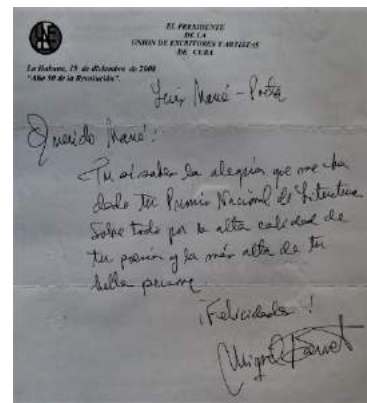 EL PRESIDENTE
DE LA
UNION DE ESCRITORES Y ARTISTAS
DE CUBA
La Habana, 19 de diciembre de 2008
"Año 50 de la Revolución".
Luis Marré - Poeta
Querido Marré:
Tu sí sabes la alegría que me ha
dado tu Premio Nacional de Literatura
Sobre todo por la alta calidad de
tu poesía y la más alta de tu
bella persona
¡Felicidades!
Miguel Barnet